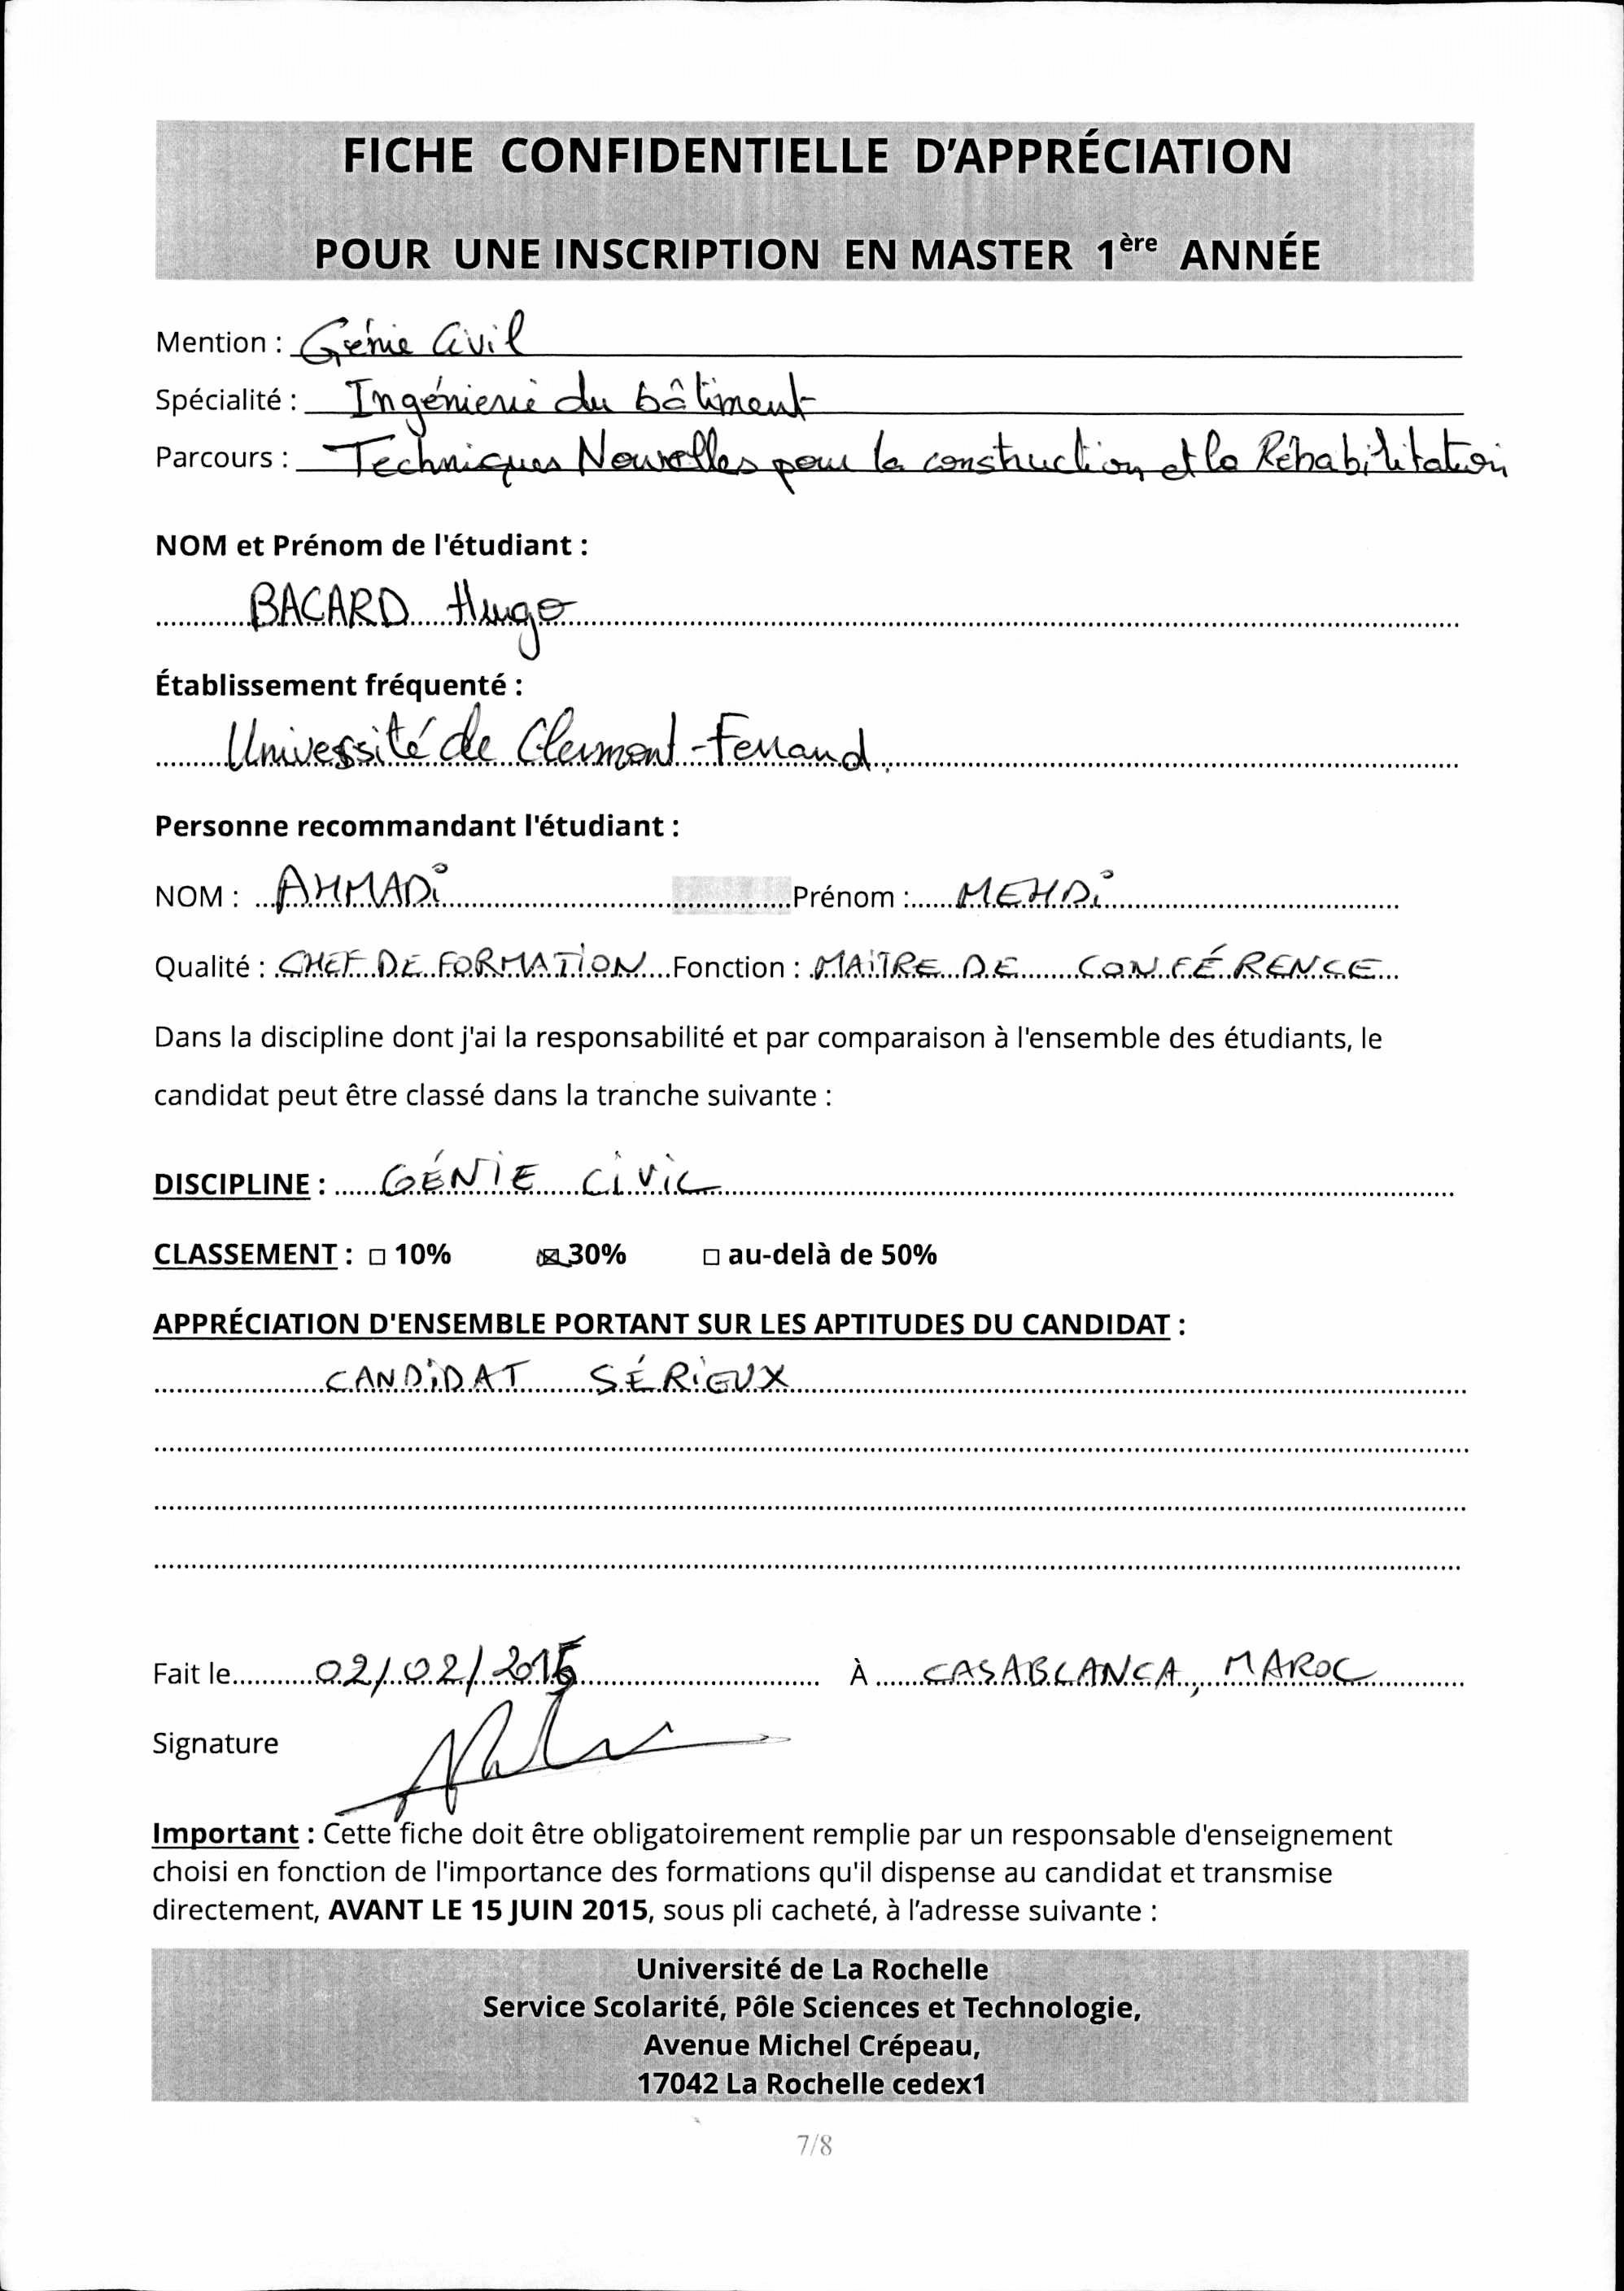 FICHE CONFIDENTIELLE D'APPRÉCIATION
POUR UNE INSCRIPTION EN MASTER 1ère ANNÉE
Mention : Génie Civil
Spécialité : Ingénierie du bâtiment
Parcours : Techniques Nouvelles pour la construction et la Réhabilitation
NOM et Prénom de l'étudiant :
BACARD Hugo
Établissement fréquenté :
Université de Clermont-Ferrand
Personne recommandant l'étudiant :
NOM : AHMADi Prénom : MEHDi
Qualité : CHEF DE FORMATION Fonction : MAiTRE DE CONFÉRENCE
Dans la discipline dont j'ai la responsabilité et par comparaison à l'ensemble des étudiants, le
candidat peut être classé dans la tranche suivante :
DISCIPLINE : GÉNIE CiViL
CLASSEMENT : □ 10% ☒ 30% □ au-delà de 50%
APPRÉCIATION D'ENSEMBLE PORTANT SUR LES APTITUDES DU CANDIDAT :
CANDiDAT SÉRiEUX
Fait le 02/02/2015 À CASABLANCA, MAROC
Signature
Important : Cette fiche doit être obligatoirement remplie par un responsable d'enseignement
choisi en fonction de l'importance des formations qu'il dispense au candidat et transmise
directement, AVANT LE 15 JUIN 2015, sous pli cacheté, à l'adresse suivante :
Université de La Rochelle
Service Scolarité, Pôle Sciences et Technologie,
Avenue Michel Crépeau,
17042 La Rochelle cedex1
7/8